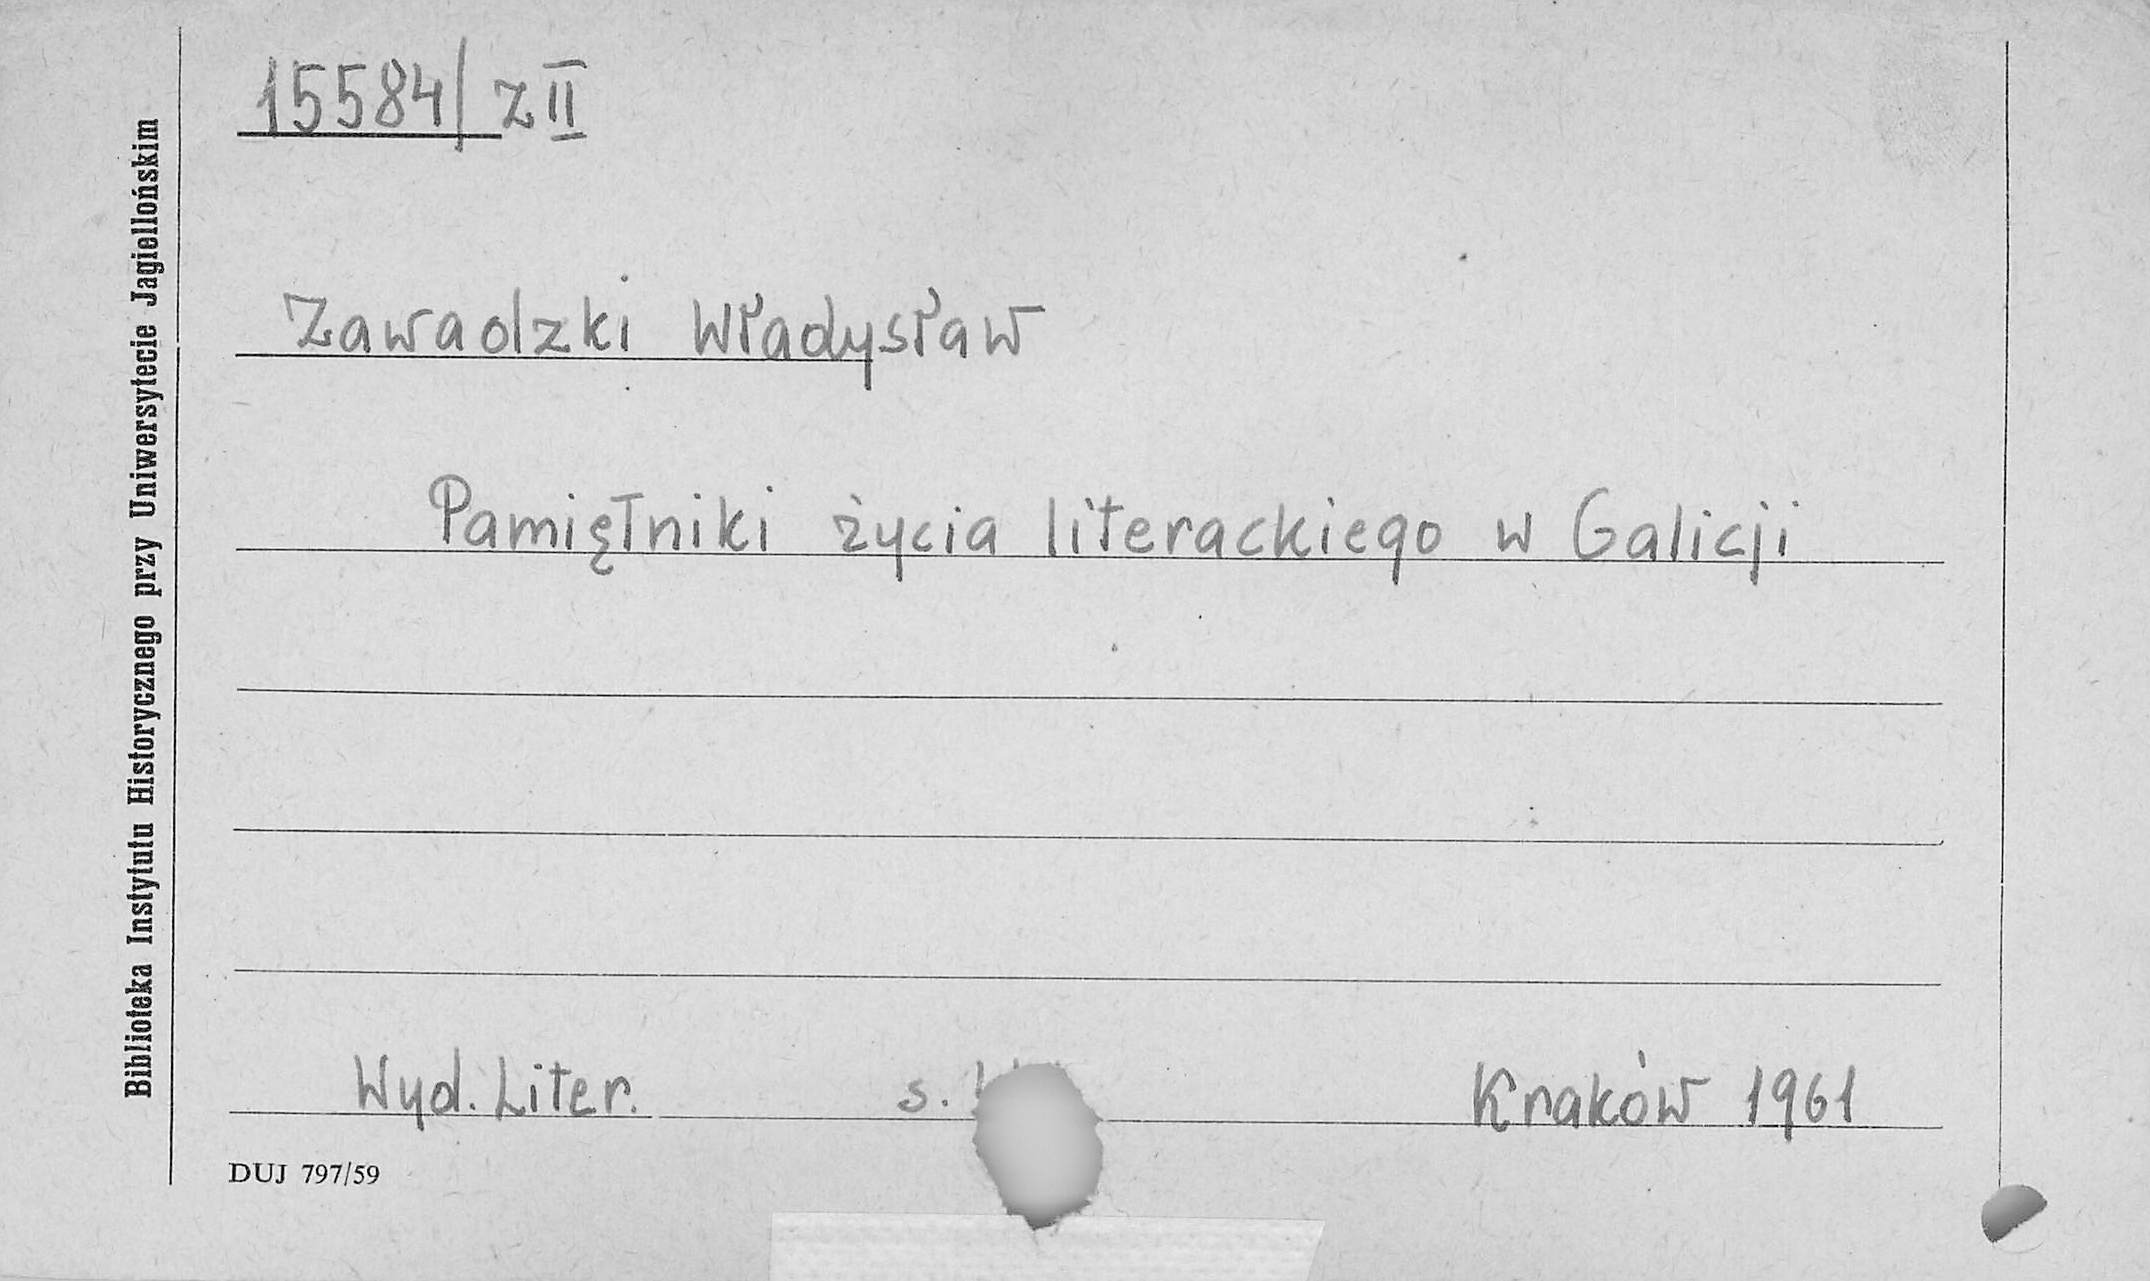 15584/ z II
Zawadzki Władysław
Pamiętniki życia literackiego w Galicji
Wyd. Liter. s. Kraków 1961
DUJ 797/59
Biblioteka Instytutu Historycznego przy Uniwersytecie Jagiellońskim